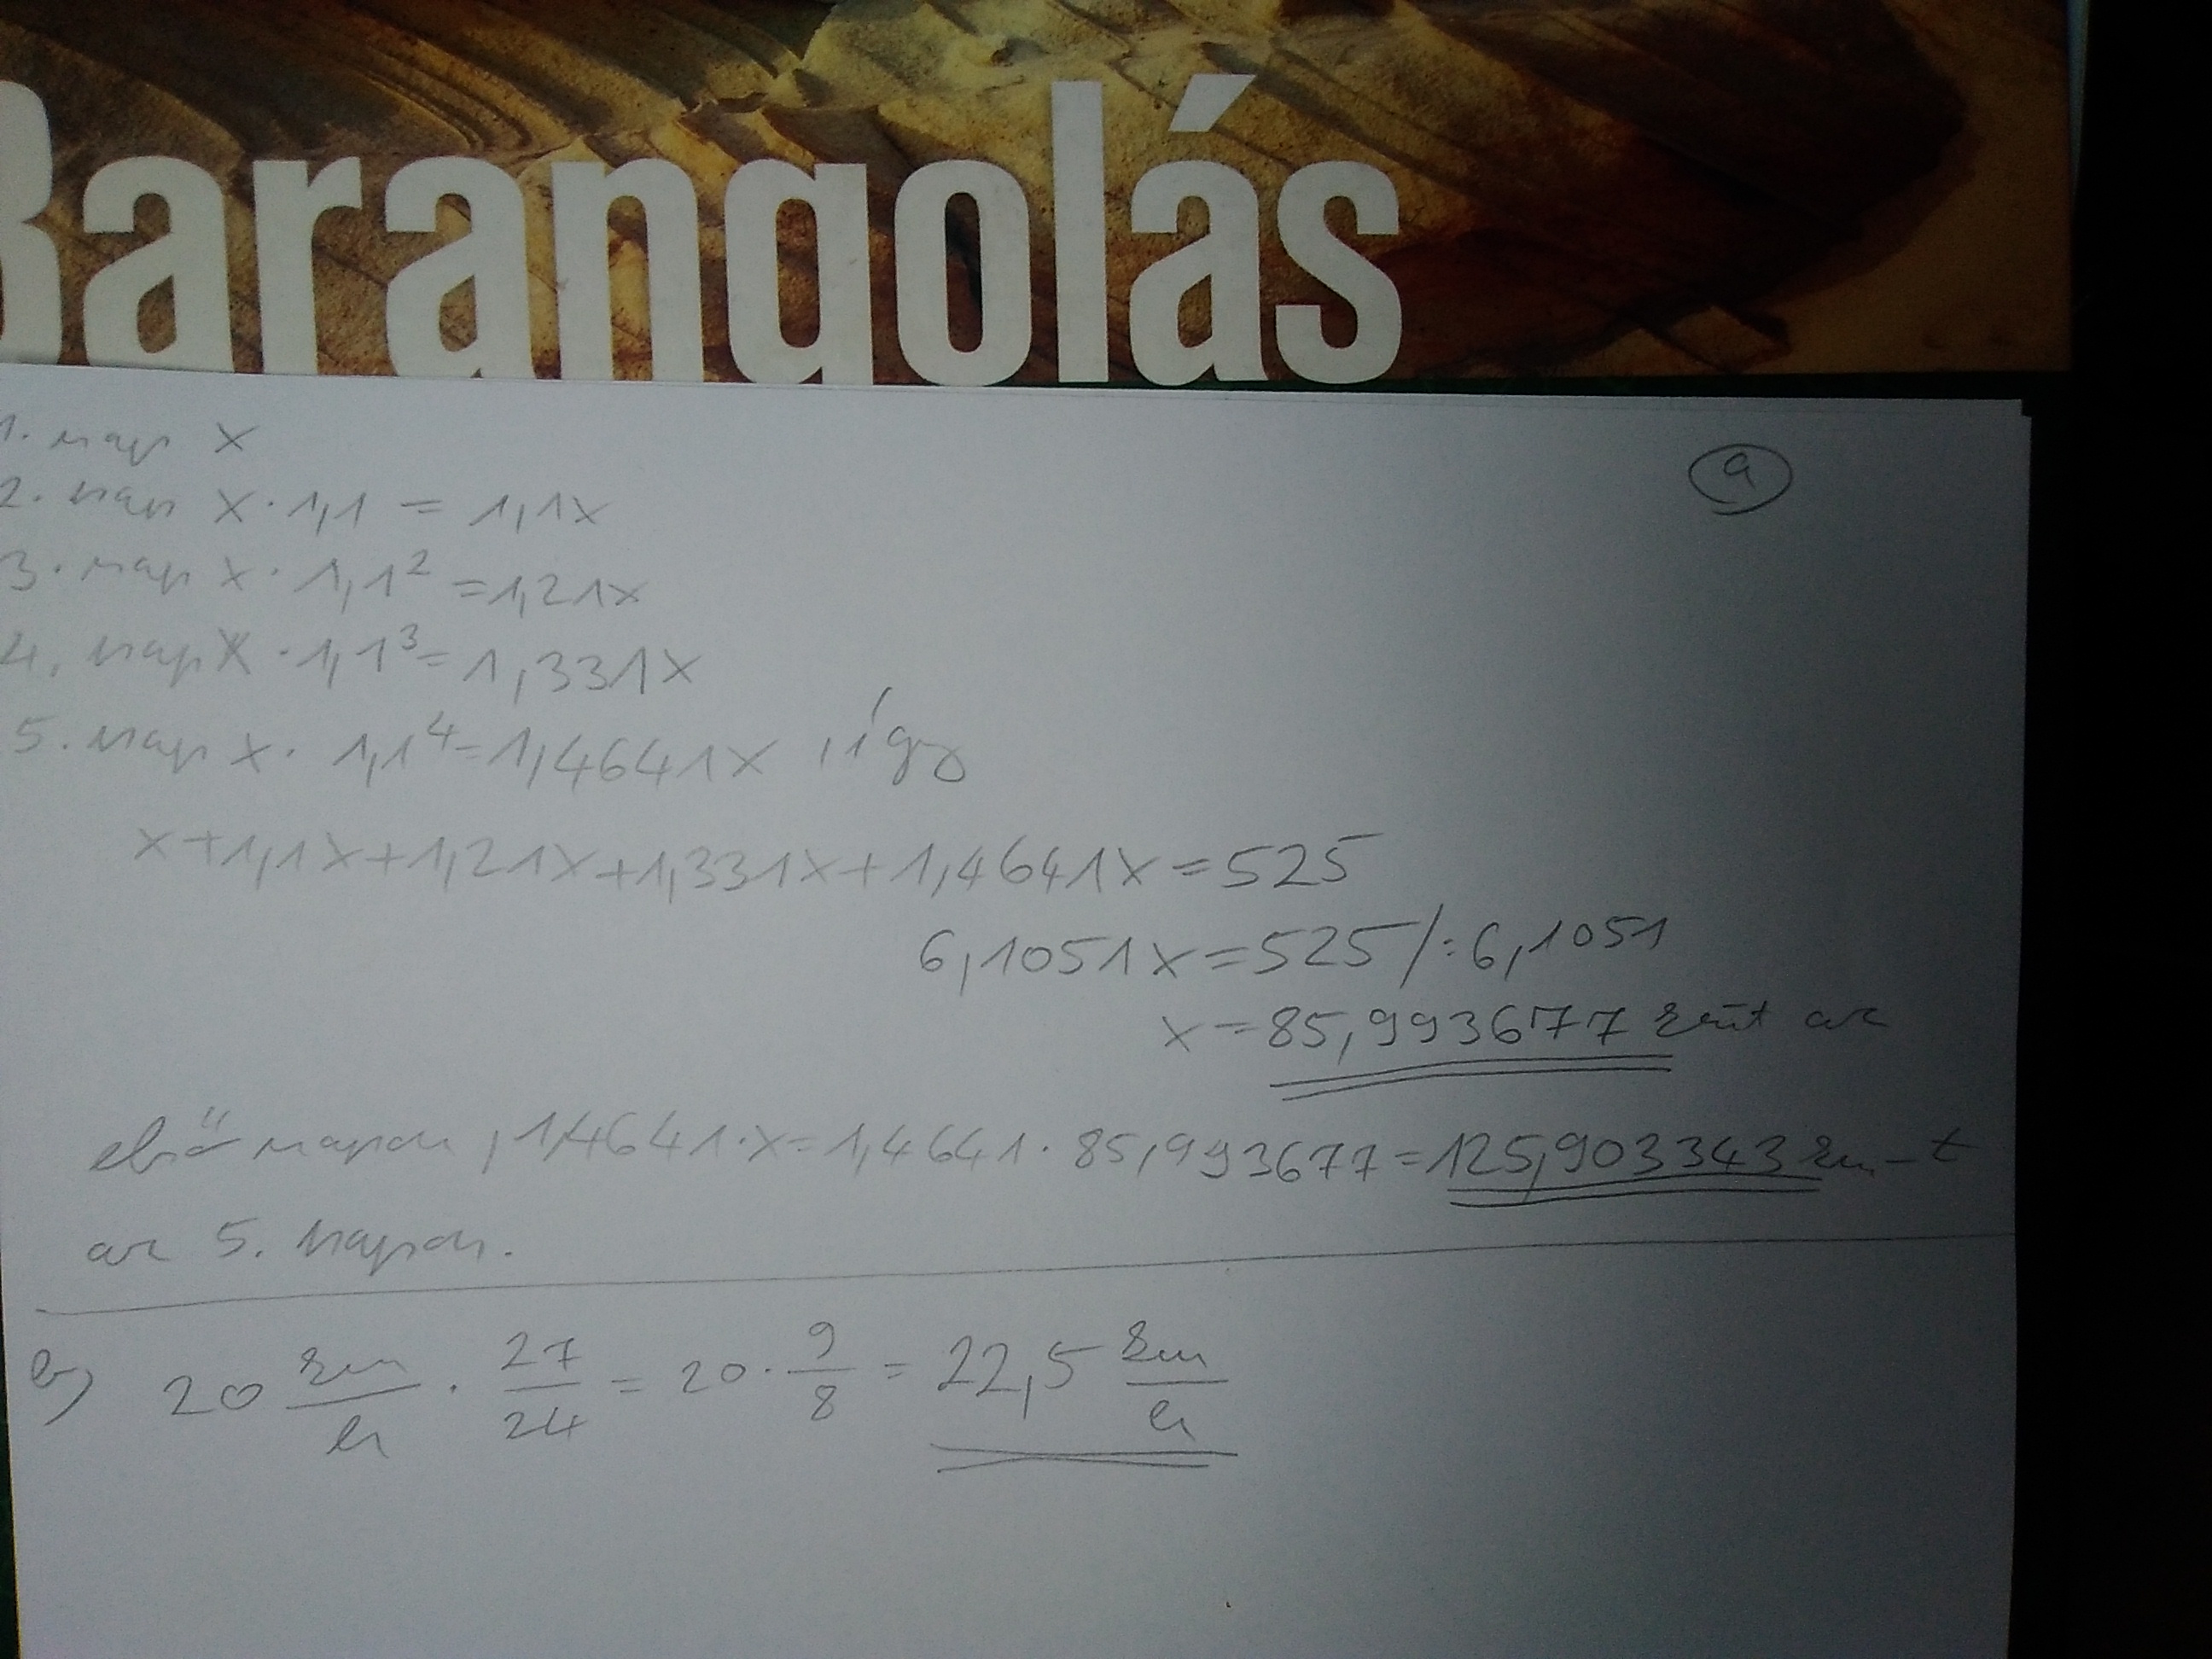 Barangolás
9
1. nap x
2. nap x · 1,1 = 1,1x
3. nap x · 1,1² = 1,21x
4. nap x · 1,1³ = 1,331x
5. nap x · 1,1⁴ = 1,4641x , így
x + 1,1x + 1,21x + 1,331x + 1,4641x = 525
6,1051x = 525 /: 6,1051
x = 85,993677 kmt az
első napon, 1,4641 · x = 1,4641 · 85,993677 = 125,903343 km-t
az 5. napon.
b) 20 km/h · 27/24 = 20 · 9/8 = 22,5 km/h